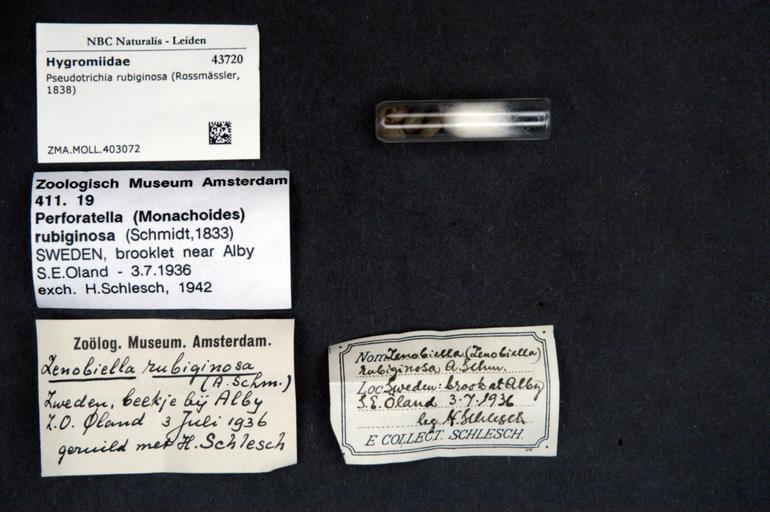 NBC Naturalis - Leiden
Hygromiidae 43720
Pseudotrichia rubiginosa (Rossmässler,
1838)
ZMA.MOLL.403072
Zoologisch Museum Amsterdam
411. 19
Perforatella (Monachoides)
rubiginosa (Schmidt,1833)
SWEDEN, brooklet near Alby
S.E.Oland - 3.7.1936
exch. H.Schlesch, 1942
Zoölog. Museum. Amsterdam.
Zenobiella rubiginosa
(A. Schm.)
Zweden, beekje bij Alby
Z.O. Øland 3 Juli 1936
geruild met H. Schlesch
Nom Zenobiella (Zenobiella)
rubiginosa A. Schm.
Loc Sweden: brook at Alby
S.E. Öland 3.7.1936
leg. H. Schlesch
E COLLECT. SCHLESCH.